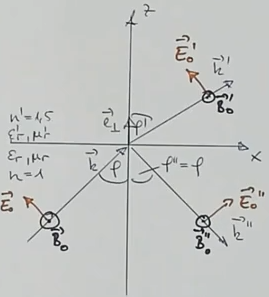 z
E₀'
k'
n' = 1,5
εr', μr'
e⊥
φ'
B₀'
x
εr, μr
n = 1
k
φ
φ'' = φ
E₀
B₀
E₀''
B₀''
k''